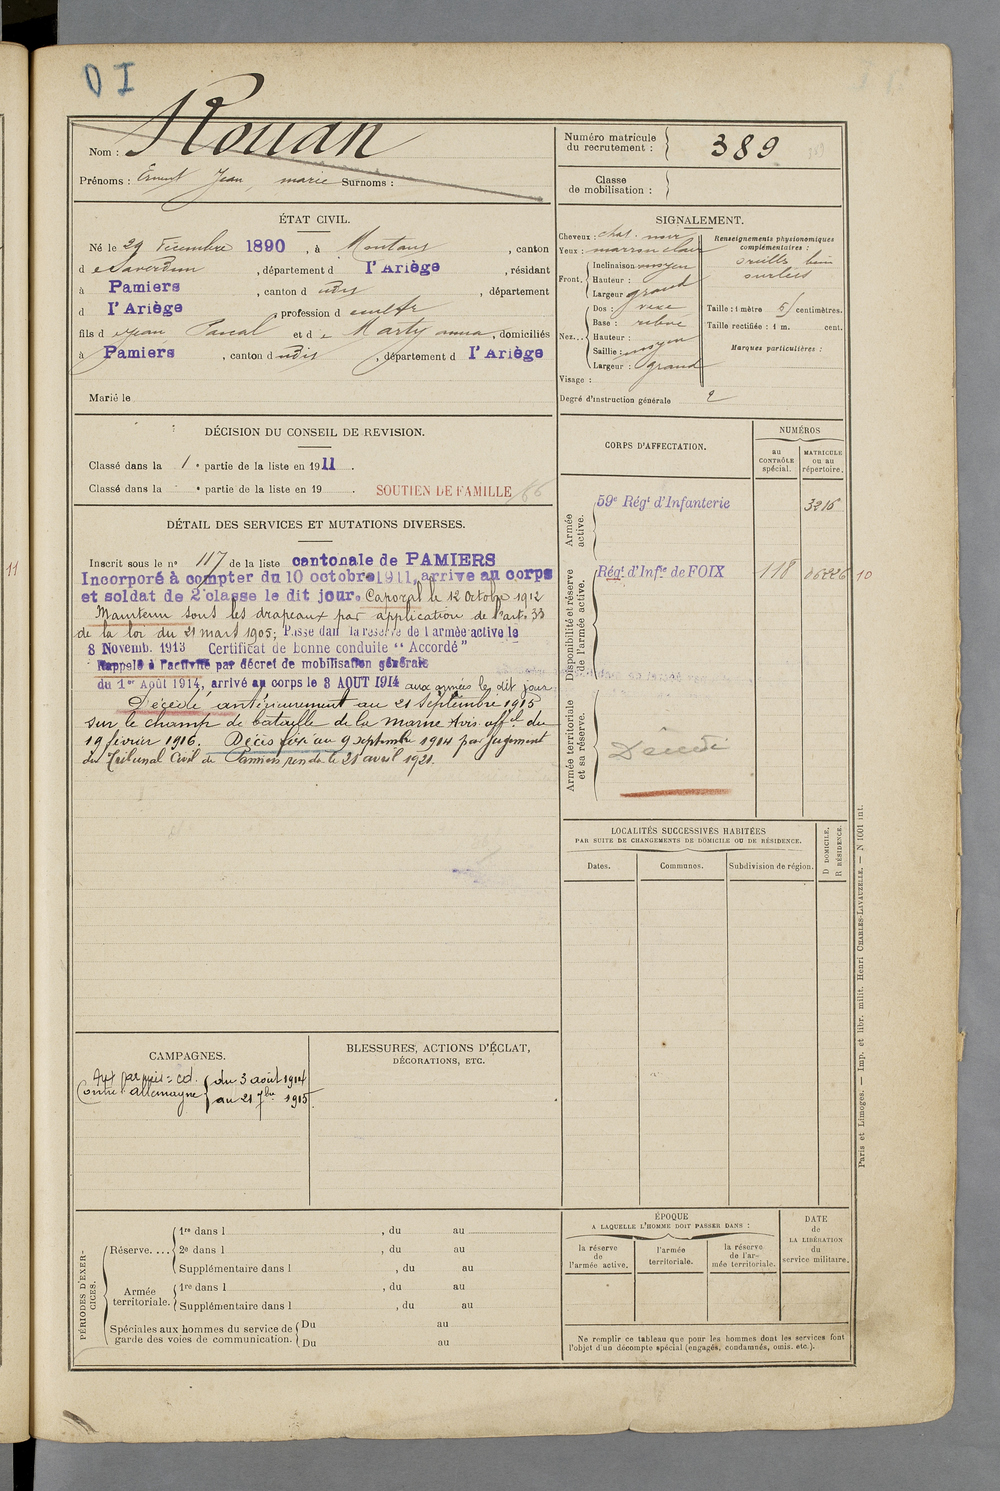 O I
Nom : Rouan
Prénoms : Ernest Jean marie Surnoms :
Numéro matricule
du recrutement :
389
Classe
de mobilisation :
ÉTAT CIVIL.
Né le 29 Décembre 1890, à Montaut, canton
de Saverdun, département d l'Ariège, résidant
à Pamiers, canton d udis, département
d l'Ariège, profession d cultr
fils d e Jean Pascal et d e Marty anna, domiciliés
à Pamiers, canton d udis, département d l'Ariège
Marié le
SIGNALEMENT.
Cheveux : chat. noir
Yeux : marron clair
Front. Inclinaison moyen
Hauteur :
Largeur grand
Nez... Dos : vexe
Base :
Hauteur :
Saillie : moyen
Largeur : grand
Visage :
Degré d'instruction générale 2
Renseignements physionomiques
complémentaires :
oreilles bien
ourlées
Taille : 1 mètre centimètres.
Taille rectifiée : 1 m. cent.
Marques particulières :
DÉCISION DU CONSEIL DE REVISION.
Classé dans la 1 e partie de la liste en 1911.
Classé dans la e partie de la liste en 19 .
SOUTIEN DE FAMILLE
DÉTAIL DES SERVICES ET MUTATIONS DIVERSES.
Inscrit sous le n° 117 de la liste cantonale de PAMIERS
Incorporé à compter du 10 octobre 1911, arrive au corps
et soldat de 2e classe le dit jour. Caporal le 12 Octobre 1912
Maintenu sous les drapeaux par application de l'art. 33
de la loi du 21 mars 1905; Passe dans la réserve de l'armée active le
8 Novemb. 1913 Certificat de bonne conduite "Accordé"
Rappelé à l'activité par décret de mobilisation générale
du 1er Août 1914, arrivé au corps le 3 AOUT 1914 aux armées le dit jour
Décédé antérieurement au 21 Septembre 1915
sur le champ de bataille de la marne Avis offel du
19 février 1916. Décès fixé au 9 septembre 1914 par jugement
du Tribunal Civil de Pamiers rendu le 21 avril 1921.
CORPS D'AFFECTATION.
NUMÉROS
au
CONTRÔLE
spécial.
MATRICULE
ou au
répertoire.
Armée
active.
59e Régt d'Infanterie
3216
Disponibilité et réserve
de l'armée active.
Régt d'Infie de FOIX
118
10
Armée territoriale
et sa réserve.
Décédé
LOCALITÉS SUCCESSIVES HABITÉES
PAR SUITE DE CHANGEMENTS DE DOMICILE OU DE RÉSIDENCE.
Dates.
Communes.
Subdivision de région.
D DOMICILE,
R RÉSIDENCE.
CAMPAGNES.
Contre l'allemagne du 3 août 1914
au 21 7bre 1915.
BLESSURES, ACTIONS D'ÉCLAT,
DÉCORATIONS, ETC.
PÉRIODES D'EXER-
CICES.
Réserve.... 1re dans l , du au
2e dans l , du au
Supplémentaire dans l , du au
Armée
territoriale. 1re dans l , du au
Supplémentaire dans l , du au
Spéciales aux hommes du service de
garde des voies de communication.
Du au
Du au
ÉPOQUE
A LAQUELLE L'HOMME DOIT PASSER DANS :
la réserve
de
l'armée active.
l'armée
territoriale.
la réserve
de l'ar-
mée territoriale.
DATE
de
LA LIBÉRATION
du
service militaire.
Ne remplir ce tableau que pour les hommes dont les services font
l'objet d'un décompte spécial (engagés, condamnés, omis. etc.).
Paris et Limoges. — Imp. et libr. milit. Henri CHARLES-LAVAUZELLE. — N 1001 int.
11